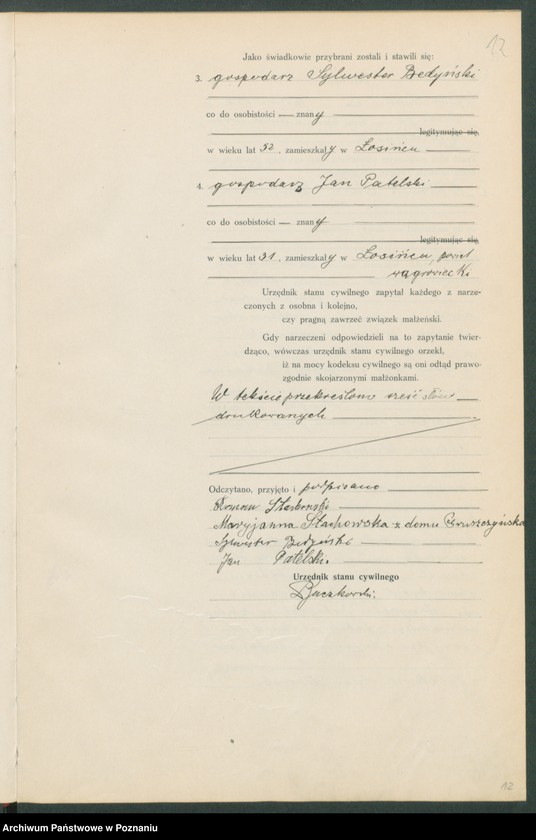 12
Jako świadkowie przybrani zostali i stawili się:
3. gospodarz Sylwester Bedyński
co do osobistości — znany
legitymując się,
w wieku lat 52, zamieszkały w Łosińcu
4. gospodarz Jan Patelski
co do osobistości — znany
legitymując się,
w wieku lat 31, zamieszkały w Łosińcu, powiat
wągrowiecki
Urzędnik stanu cywilnego zapytał każdego z narze-
czonych z osobna i kolejno,
czy pragną zawrzeć związek małżeński.
Gdy narzeczeni odpowiedzieli na to zapytanie twier-
dząco, wówczas urzędnik stanu cywilnego orzekł,
iż na mocy kodeksu cywilnego są oni odtąd prawo-
zgodnie skojarzonymi małżonkami.
W tekście przekreślono sześć słów
drukowanych
Odczytano, przyjęto i podpisano
Roman
Maryjanna Stachowska z domu
Sylwester Bedyński
Jan Patelski.
Urzędnik stanu cywilnego
12
Archiwum Państwowe w Poznaniu